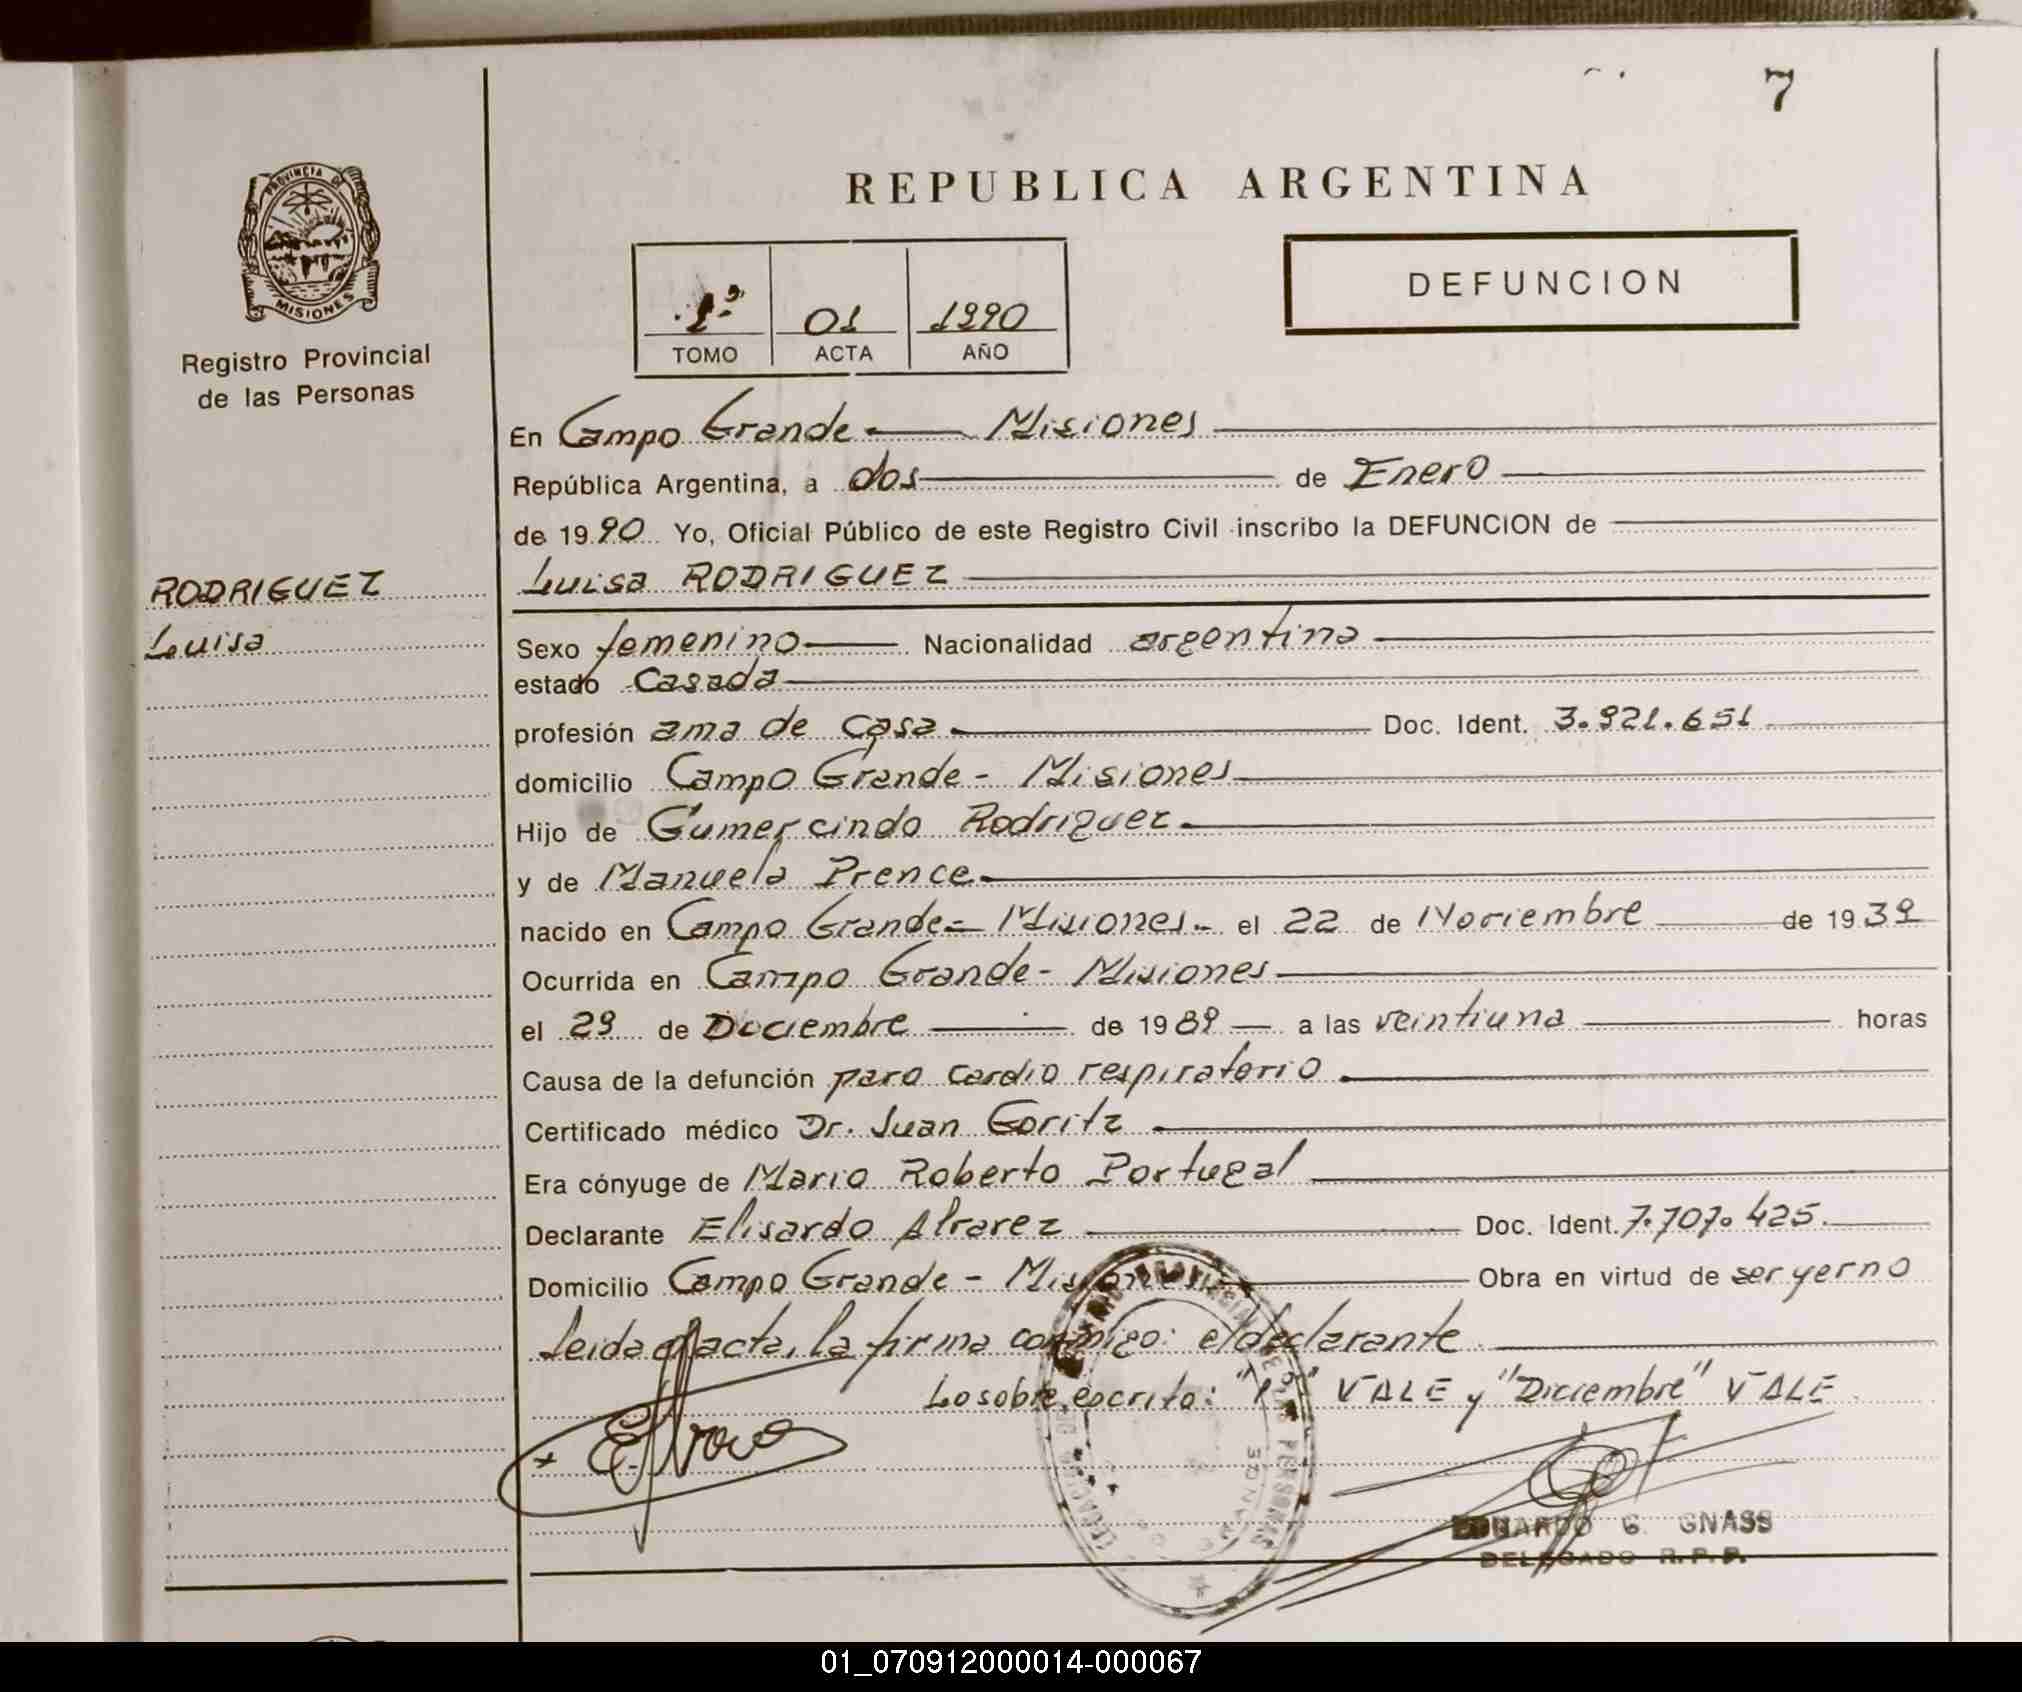 7
PROVINCIA DE
MISIONES
Registro Provincial
de las Personas
REPUBLICA ARGENTINA
1º 01 1990
TOMO ACTA AÑO
DEFUNCION
En Campo Grande - Misiones
República Argentina, a dos de Enero
de 1990 Yo, Oficial Público de este Registro Civil inscribo la DEFUNCION de
RODRIGUEZ
Luisa
Luisa RODRIGUEZ
Sexo femenino Nacionalidad argentina
estado Casada
profesión ama de casa Doc. Ident. 3.921.651
domicilio Campo Grande - Misiones
Hijo de Gumercindo Rodriguez
y de Manuela Prence
nacido en Campo Grande - Misiones - el 22 de Noviembre de 1939
Ocurrida en Campo Grande - Misiones
el 29 de Diciembre de 1989 a las veintiuna horas
Causa de la defunción paro cardio respiratorio
Certificado médico Dr. Juan Goritz
Era cónyuge de Mario Roberto Portugal
Declarante Elisardo Alvarez Doc. Ident. 7.707.425
Domicilio Campo Grande - Misiones Obra en virtud de ser yerno
Leida el acta, la firma conmigo: el declarante
Lo sobre escrito: "1º" VALE y "Diciembre" VALE
EDUARDO G. GNASS
DELEGADO R.P.P.
01_070912000014-000067